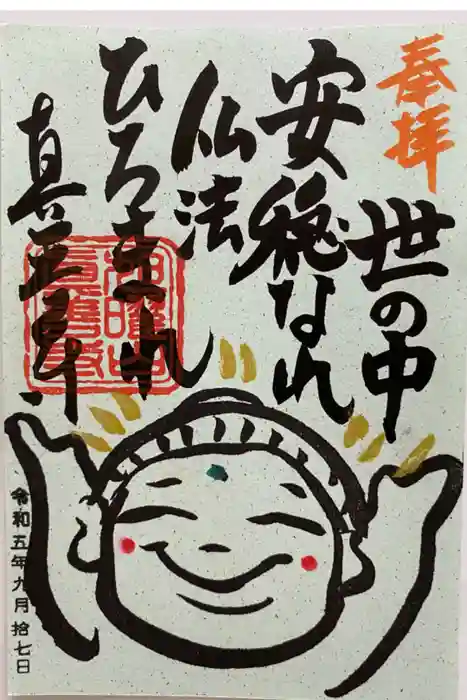 奉拝
世の中
安穏なれ
仏法
ひろまれ
令和五年九月拾七日